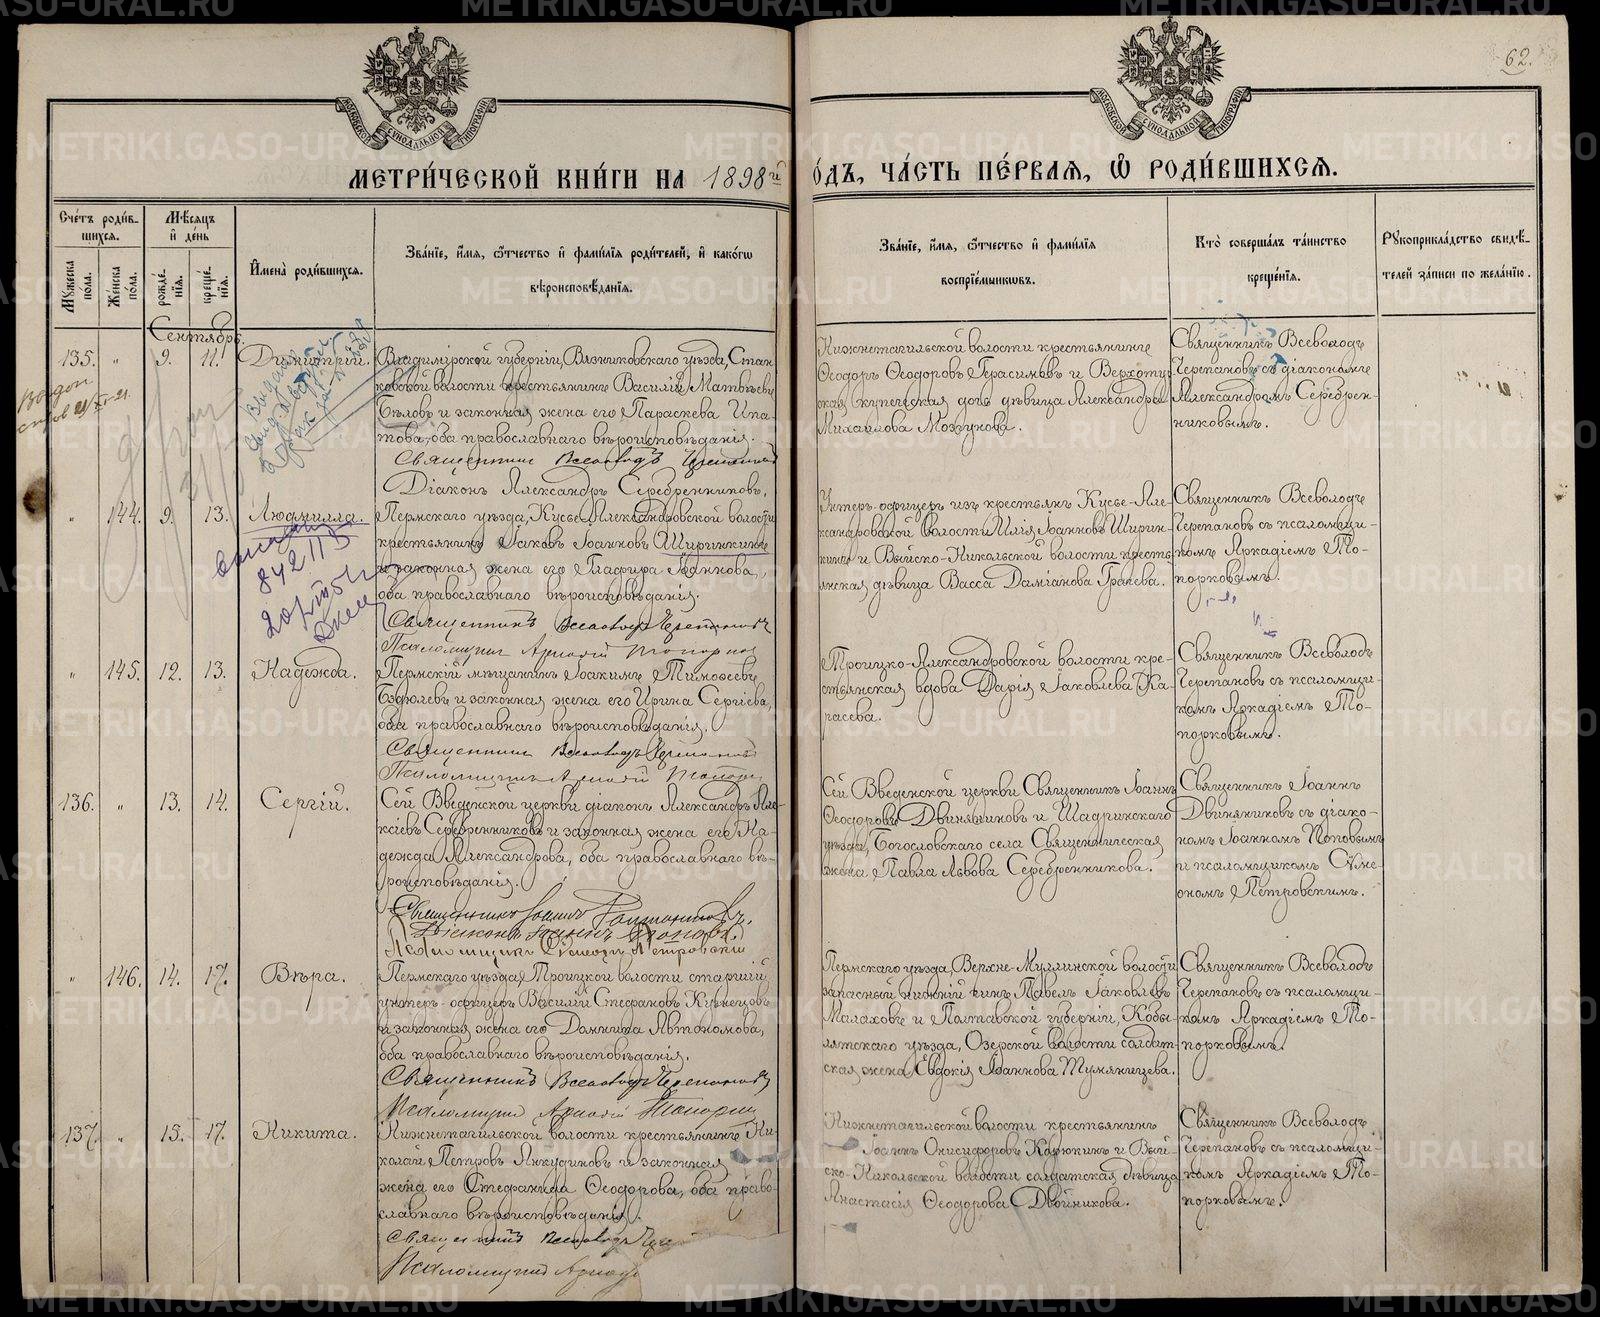 62.
МЕТРИ́ЧЕСКОЙ КНИ́ГИ НА 1898й
О́ДЪ, ЧА́СТЬ ПЕ́РВАЯ, Ѡ҆ РОДИ́ВШИХСЯ.
Сче́тъ роди́в-
шихся.
Мѣ́сяцъ
и҆ де́нь
Мꙋ́жеска
по́ла.
Же́нска
по́ла.
рожде́-
нїя.
креще́-
нїя.
И҆мена̀ роди́вшихся.
Зва́нїе, и҆́мя, ѻ҆́тчество и҆ фами́лїя роди́телей, и҆ како́гѡ
вѣроисповѣ́данїя.
Зва́нїе, и҆́мя, ѻ҆́тчество и҆ фами́лїя
воспрїе́мникѡвъ.
Кто̀ соверша́лъ та́инство
креще́нїя.
Рꙋкоприкла́дство свидѣ́-
телей за́писи по жела́нїю.
Сентябрь.
135. " 9. 11. Димитрій.
Владимірской губерніи, Вязниковскаго уѣзда, Стан-
ковской волости крестьянинъ Василій Матвѣевъ
Бѣловъ и законная жена его Параскева Ипа-
това, оба православнаго вѣроисповѣданія.
Священникъ Всеволодъ Черепановъ
Діаконъ Александръ Серебренниковъ.
Нижнетагильской волости крестьянинъ
Ѳеодоръ Ѳеодоровъ Герасимовъ и Верхоту-
ская купеческая дочь дѣвица Александра
Михаилова Мозгунова.
Священникъ Всеволодъ
Черепановъ съ діакономъ
Александромъ Серебрен-
никовымъ.
" 144. 9. 13. Людмилла.
Пермскаго уѣзда, Кусье-Александровской волости
крестьянинъ Іаковъ Іоанновъ Ширинкинъ
и законная жена его Глафира Іоаннова,
оба православнаго вѣроисповѣданія.
Священникъ Всеволодъ Черепановъ
Псаломщикъ Аркадій Топорков
Унтеръ-офицеръ изъ крестьянъ Кусье-Але-
ксандровской волости Илія Іоанновъ Ширин-
кинъ и Выйско-Никольской волости кресть-
янская дѣвица Васса Даміанова Грачева.
Священникъ Всеволодъ
Черепановъ съ псаломщи-
комъ Аркадіемъ То-
порковымъ.
" 145. 12. 13. Надежда.
Пермскій мѣщанинъ Іоакимъ Тимоѳеевъ
и законная жена его Ирина Сергіева,
оба православнаго вѣроисповѣданія.
Священникъ Всеволодъ Черепановъ
Псаломщикъ Аркадій Топорков
Троицко-Александровской волости кре-
стьянская вдова Дарія Іаковлева Ка-
расева.
Священникъ Всеволодъ
Черепановъ съ псаломщи-
комъ Аркадіемъ То-
порковымъ.
136. " 13. 14. Сергій.
Сей Введенской церкви діаконъ Александръ Але-
ксіевъ Серебренниковъ и законная жена его На-
дежда Александрова, оба православнаго вѣ-
роисповѣданія.
Священникъ Іоаннъ
Діаконъ Іоаннъ Поповъ.
Псаломщикъ Сѵмеонъ Петровскій
Сей Введенской церкви Священникъ Іоаннъ
Ѳеодоровъ Двиняниновъ и Шадринскаго
уѣзда, Богословскаго села Священническая
жена Павла Львова Серебренникова.
Священникъ Іоаннъ
Двиняниновъ съ діако-
номъ Іоанномъ Поповымъ
и псаломщикомъ Сѵме-
ономъ Петровскимъ.
" 146. 14. 17. Вѣра.
Пермскаго уѣзда, Троицкой волости старшій
унтеръ-офицеръ Василій Стефановъ Кузнецовъ
и законная жена его Домника Автономова,
оба православнаго вѣроисповѣданія.
Священникъ Всеволодъ Черепановъ
Псаломщикъ Аркадій Топорков
Пермскаго уѣзда, Верхне-Муллинской волости
запасный нижній чинъ Павелъ Іаковлевъ
Малаховъ и Полтавской губерніи, Кобы-
лятскаго уѣзда, Озерской волости солдат-
ская жена Евдокія Іоаннова Тумянцева.
Священникъ Всеволодъ
Черепановъ съ псаломщи-
комъ Аркадіемъ То-
порковымъ.
137. " 15. 17. Никита.
Нижнетагильской волости крестьянинъ Ни-
колай Петровъ Анкудиновъ и законная
жена его Стефанида Ѳеодорова, оба право-
славнаго вѣроисповѣданія.
Священникъ Всеволодъ Чере
Псаломщикъ Аркадій
Нижнетагильской волости крестьянинъ
Іоаннъ Онисифоровъ Карюкинъ и Вый-
ско-Никольской волости солдатская дѣвица
Анастасія Ѳеодорова Двойникова.
Священникъ Всеволодъ
Черепановъ съ псаломщи-
комъ Аркадіемъ То-
порковымъ.
METRIKI.GASO-URAL.RU